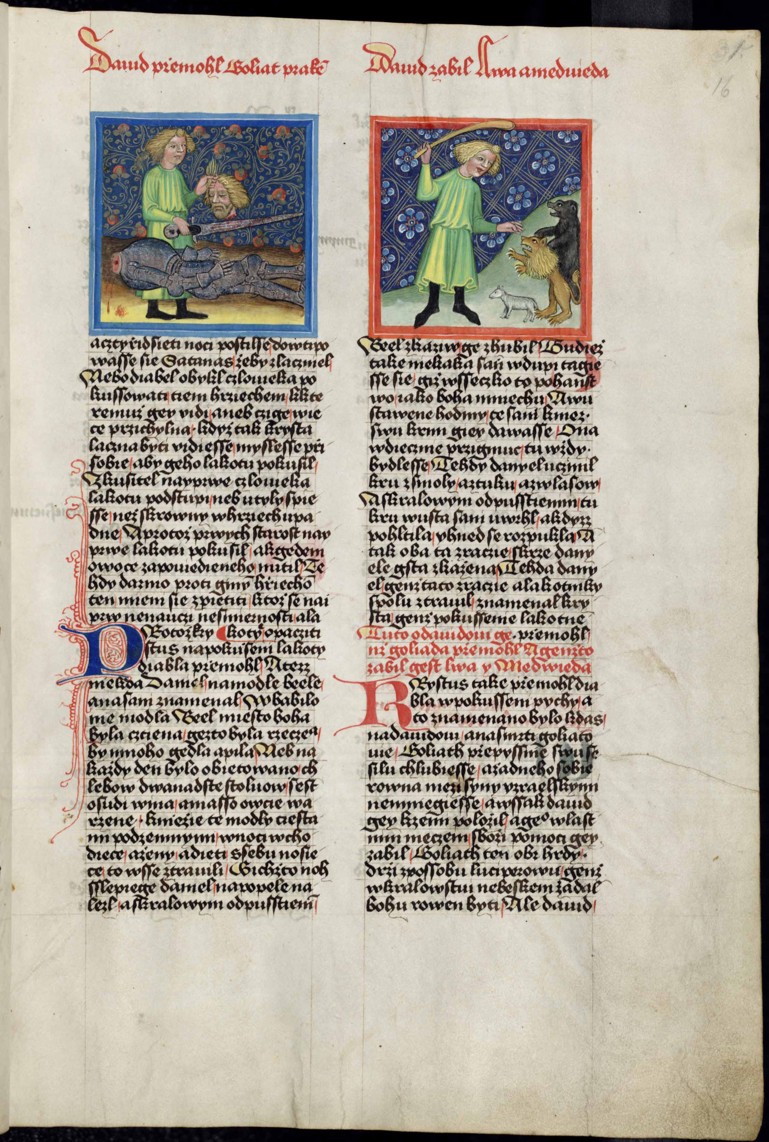 Dauid přemohl Goliat prakē
aczty ridsieti noci postilsse dowtipo
wasse sie Satanas zeby zlaczniel
Nebo diabel obykl czlowieka po
kussowati tiem hrziechem kkte
remuz gey vidi aneb czige wie
ce przichylna kdyz tak krysta
laczna byti vidiesse myslesse při
sobie aby geho lakotu pokusil
Zkusitel nayprwe czlowieka
lakotu podstupi neb utyly spie
sse nez skrowny whrziech upa
dne Aprotoz prwych starost nay
prwe lakotu pokusil akgedem
owoce zapowiedieneho nutil Te
hdy darmo proti gmy hriecho
ten miem sie zpietiti ktoz se nai
prw nenauczi nesmiernosti ala
Potozky koty opacziti
stus napokusem lakoty
diabla přemohl Aterz
niekda Daniel namodle beele
anasam znamenal Wbabilo
nie modla Beel miesto boha
byla cztiena gezto byla rzecze
by mnoho gedla apila Neb na
kazdy den bylo obietowano ch
lebow dwanadste stoluow sest
osudi wina amasso owcie wa
rzene kniezie te modly ciesta
mi podzemnymi wnoci wcho
diece azeny adieti ssebu nosie
ce to wsse ztrawili Gichzto noh
sslepiege daniel napopele na
lezl askralowym odpusstiem
Dauid zabil Lwa a medwieda
16
Beel zkaziw ge zhubil Gudiez
take niekaka san wdupi tagie
sse sie giz wsseczko to pohanst
wo iako boha mniechu Awu
stawene hodiny te sani kniez
siwu krmi giey dawasse Ona
wdieczne przigmuc tu wzdy
bydlesse Tehdy danyel uczinil
kru zsmoly aztuku azwlasow
Askralowym odpusstienim tu
kru wusta sani uwrhl akdyz
pohltila yhned se rozpukla A
tak oba ta zraczie skrze dany
ele gsta zkazena Tehda dany
el genz taco zraczie a lakotniky
spolu ztrawil znamenal kry
sta genz pokusseme lakotne
Tuto odauidowi ge přemohl
nz goliada přemohl Agenzto
zabil gest lwa y Medwieda
Rystus take přemohl dia
bla wpokussem pychy a
to znamenano bylo kdas
nadauidowi anasmrti goliato
wie Goliath přepyssnie swu se
silu chlubiesse azadneho sobie
rowna mezi syny yzraelskymi
nemniegiesse awssak dauid
gey kzemi polozil agehº wlast
nim meczem sbozi pomoci gey
zabil Goliath ten obr hrdy
drzi zpossobu luciperowu genz
wkralowstwi nebeskem zadal
bohu rowen byti Ale dauid